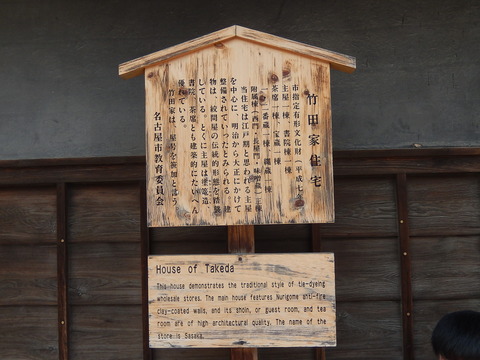 竹田家住宅
市指定有形文化財(平成七
主屋一棟・書院棟一棟
茶席一棟・宝蔵一棟
一番蔵一棟・縄蔵一棟
附属棟(西門・長屋門・味噌蔵)三棟
当住宅は江戸期と思われる主屋
を中心に、明治から大正にかけて
整備されていったとみられる。建
物は、絞問屋の伝統的形態を踏襲
している。とくに主屋は塗篭造、
書院、茶席とも建築的にたいへん
優れている。
竹田家は、屋号を笹加と言う
名古屋市教育委員会
House of Takeda
This house demonstrates the traditional style of tie-dyeing
wholesale stores. The main house features Nurigome anti-fire
clay-coated walls, and its shoin, or guest room, and tea
room are of high architectural quality. The name of the
store is Sasaka.